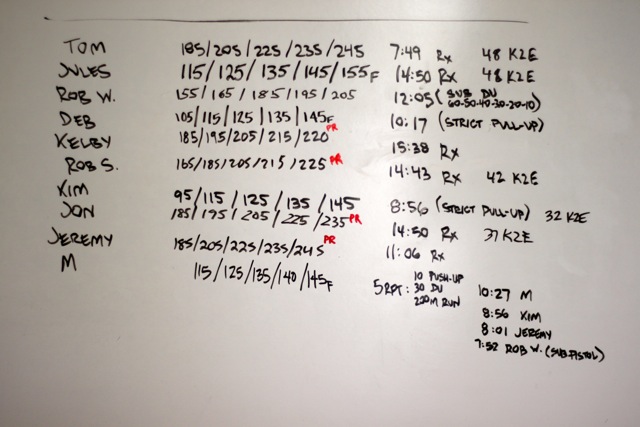 TOM 185/205/225/235/245 7:49 Rx 48 K2E
JULES 115/125/135/145/155F 14:50 Rx 48 K2E
ROB W. 155/165/185/195/205 12:05 (SUB DU 60-50-40-30-20-10)
DEB 105/115/125/135/145F 10:17 (STRICT PULL-UP)
KELBY 185/195/205/215/220 PR 15:38 Rx
ROB S. 165/185/205/215/225 PR 14:43 Rx 42 K2E
KIM 95/115/125/135/145 8:56 (STRICT PULL-UP) 32 K2E
JON 185/195/205/225/235 PR 14:50 Rx 37 K2E
JEREMY 185/205/225/235/245 PR 11:06 Rx
M 115/125/135/140/145F
5 RFT: 10 PUSH-UP
30 DU
220M RUN
10:27 M
8:56 KIM
8:01 JEREMY
7:52 ROB W. (SUB PISTOL)